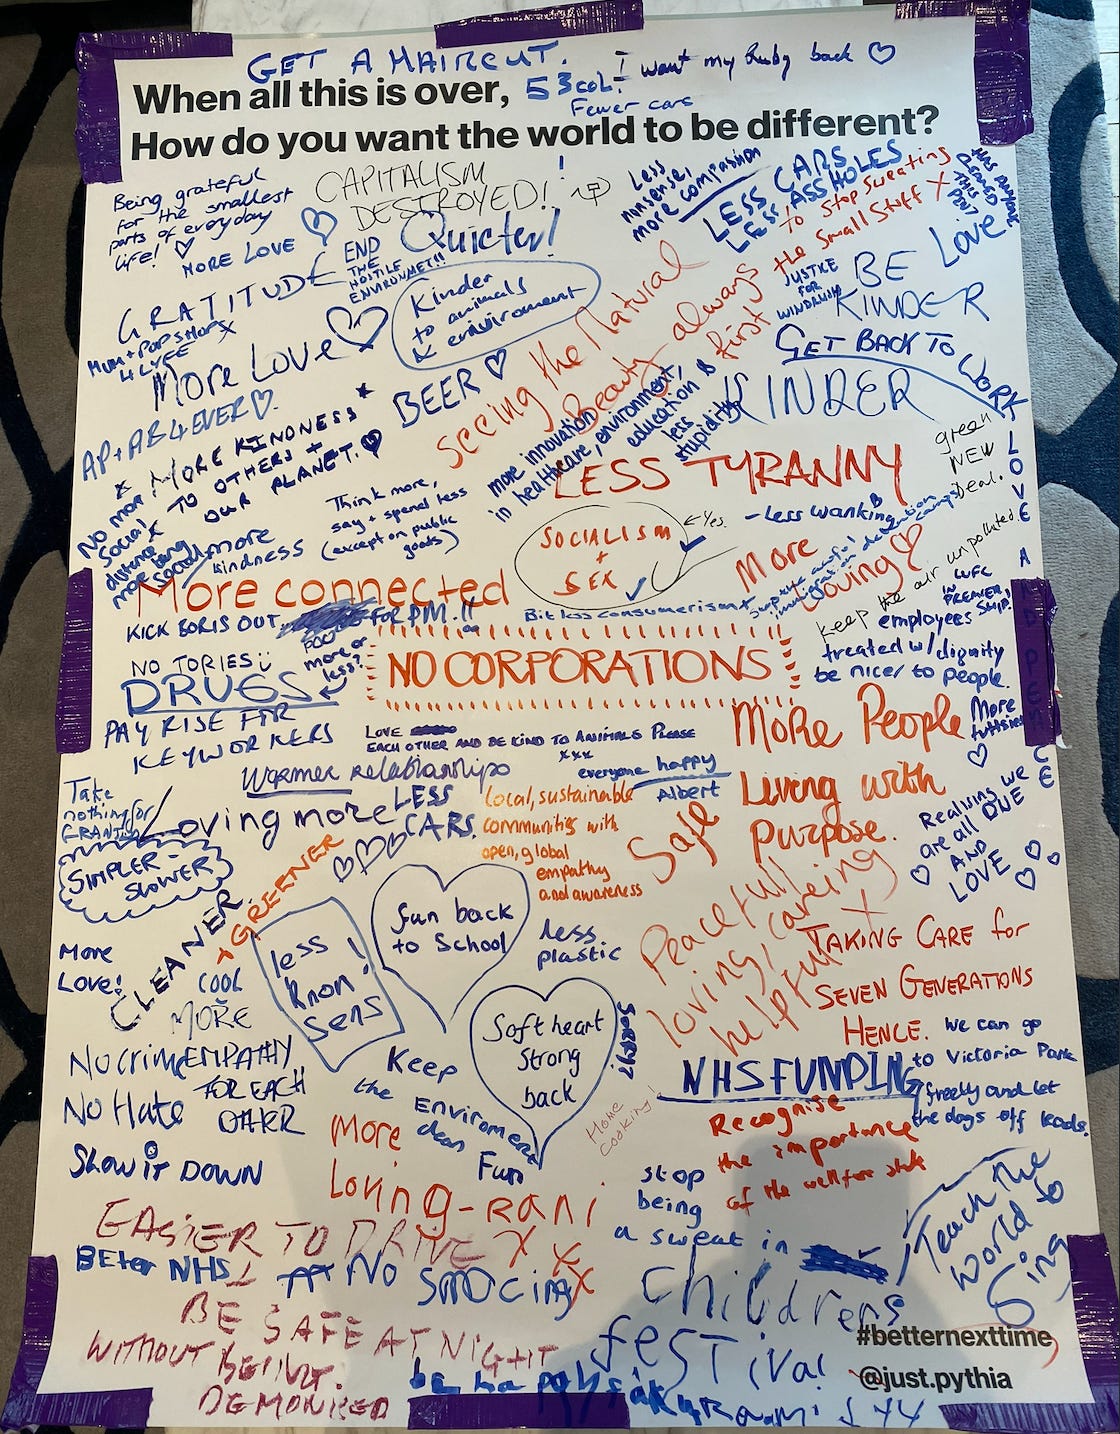 GET A HAIRCUT.
I want my Ruby back
When all this is over,
53 COL!
Fewer cars
How do you want the world to be different?
Being grateful
for the smallest
parts of everyday
life!
CAPITALISM
DESTROYED!
Less
nonsense,
more compassion
LESS CARS
LESS ASSHOLES
to stop sweating
the small stuff X
HAS ANYONE
THIS
MORE LOVE
END
THE
HOSTILE
ENVIRONMET!!
Quieter!
GRATITUDE
MUM + POP SHOPS
4 LYFE X
More Love
Kinder
to animals
& environment
Seeing the Natural
Beauty always
first
JUSTICE
FOR
WINDRUSH
BE
Love
KINDER
GET BACK TO WORK
KINDER
AP + AB 4 EVER
BEER
MORE KINDNESS
TO OTHERS +
OUR PLANET.
more innovation
in healthcare, environment,
education &
less
stupidity
LESS TYRANNY
green
NEW
Deal.
LOVE AND PEACE
NO mor
Social
distance
more being
social
more
kindness
Think more,
say + spend less
(except on public
goods)
SOCIALISM
+
SEX
Yes.
-Less wanking
More
Loving
More connected
Bit less consumerism
keep the air unpolluted
KICK BORIS OUT
FOR PM.!!
WFC
IN PREMIER
SHIP.
employees
treated w/ dignity
be nicer to people.
NO TORIES
DRUGS
more or
less?
NO CORPORATIONS
PAY RISE FOR
KEYWORKERS
LOVE
EACH OTHER AND BE KIND TO ANIMALS PLEASE
xxx
More People
Living with
purpose.
More
Warmer relationships
everyone happy
Albert
Take
nothing for
GRANTED
Loving more
LESS
CARS.
local, sustainable
communities with
open, global
empathy
and awareness
Safe
Realising we
are all ONE
AND
LOVE
SIMPLER-
SLOWER
CLEANER
+ GREENER
fun back
to School
less
plastic
Peacefull
loving, careing
helpful
X
TAKING CARE for
SEVEN GENERATIONS
HENCE.
More
Love!
COOL
less
Knon!
Sens
MORE
EMPATHY
FOR EACH
OTHER
Soft heart
Strong
back
SORRY?
No crim
No Hate
Keep
the Enviroment
clean
Fun
NHS FUNDING
we can go
to Victoria Park
freely and let
the dogs off leads.
Home
cooking!
Recognise
the importance
of the welfare state
SLOW IT DOWN
More
Loving-RANI
stop
being
a sweat in
Teach the
world to
Sing
EASIER TO DRIVE
X X X
BEter NHS
NO SMOCing
childrens
festival
BE SAFE AT NIGHT
WITHOUT BEING
DEMONISED
#betternexttime
@just.pythia